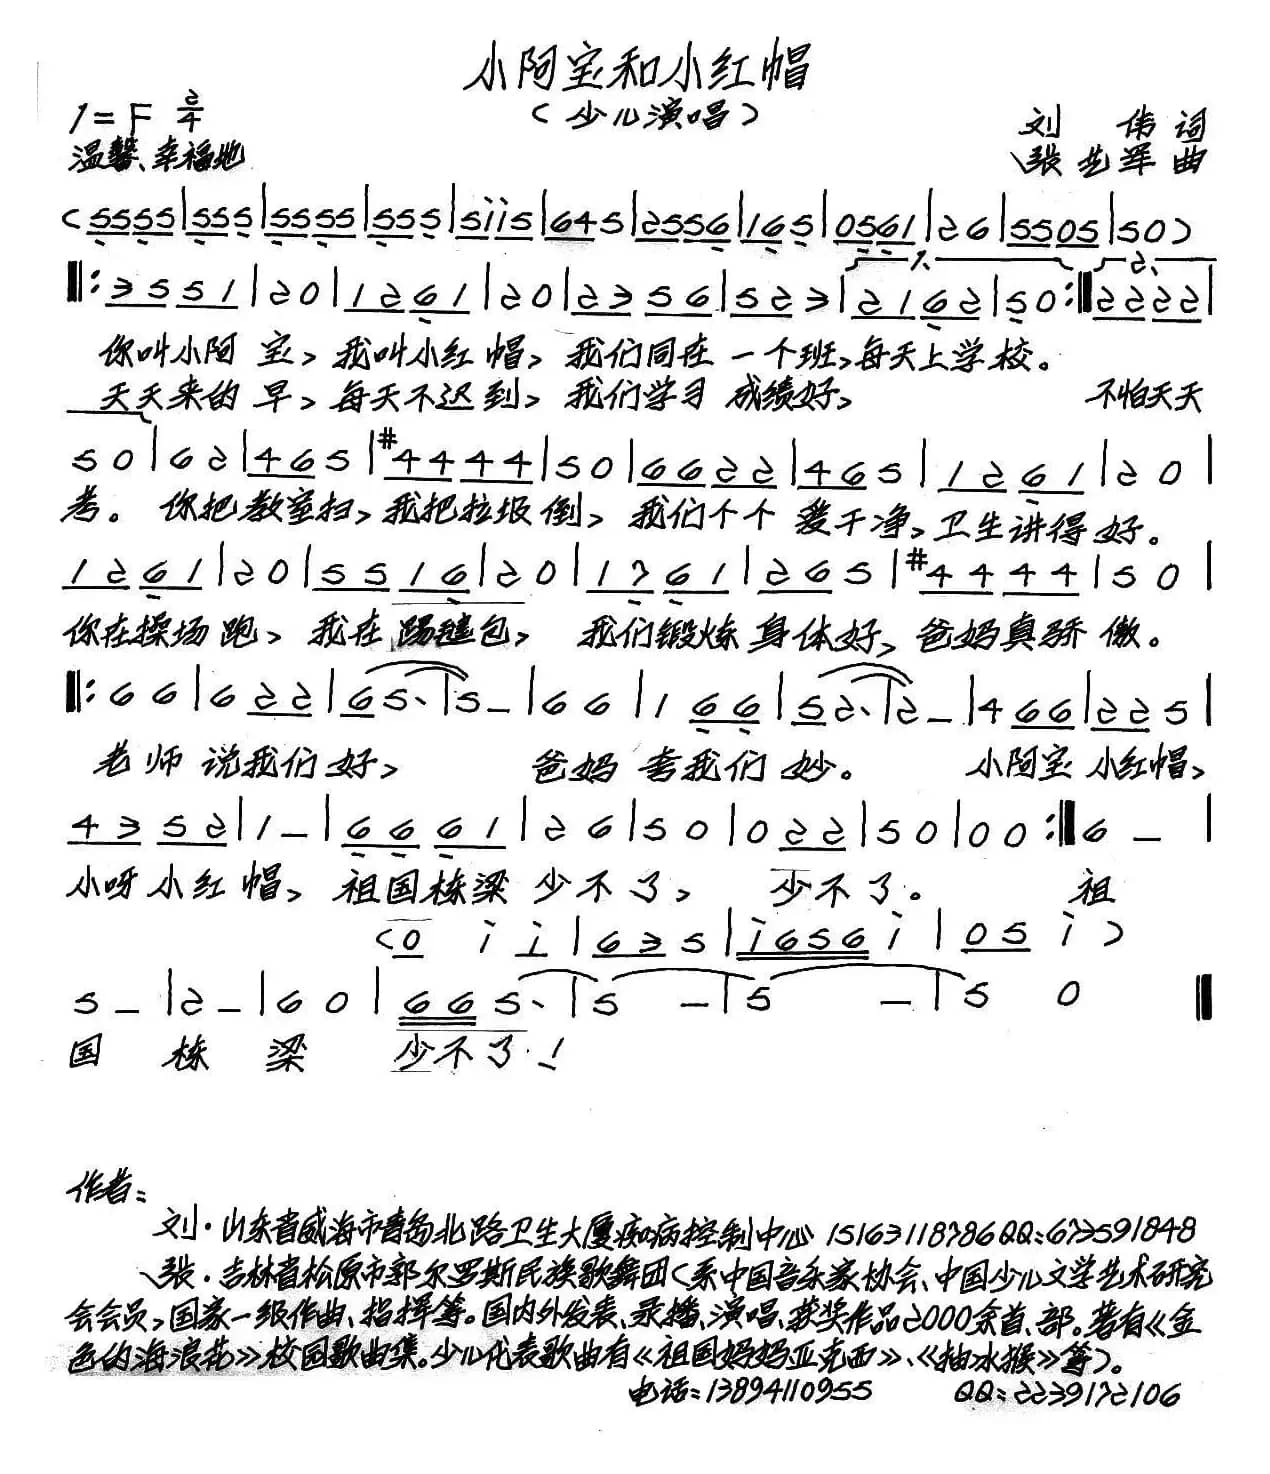 小阿宝和小红帽
（少儿演唱）
1=F 2/4
温馨、幸福地
刘 伟 词
张艺军 曲
(5555|555|5555|555|5ii5|645|2556|165|0561|26|5505|50)
‖:3551|20|1261|20|2356|523|1.2162|50:‖2.2222|
你叫小阿宝，我叫小红帽，我们同在一个班，每天上学校。
天天来的早，每天不迟到，我们学习成绩好， 不怕天天
50|62|465|#4444|50|6622|465|1261|20|
考。你把教室扫，我把垃圾倒，我们个个爱干净，卫生讲得好。
1261|20|5516|20|1761|265|#4444|50|
你在操场跑，我在踢毽包，我们锻炼身体好，爸妈真骄傲。
‖:66|622|65·|5–|66|166|52·|2–|466|225|
老师说我们好， 爸妈夸我们妙。 小阿宝小红帽，
4352|1–|6661|26|50|022|50|00:‖6–|
小呀小红帽，祖国栋梁少不了， 少不了。 祖
(0 i i|635|i656i|05i)
5–|2–|60|665·|5–|5–|50‖
国栋梁 少不了！
作者：
刘·山东省威海市青岛北路卫生大厦疾病控制中心 15163118786 QQ:673591848
张·吉林省松原市郭尔罗斯民族歌舞团（系中国音乐家协会、中国少儿文学艺术研究
会会员，国家一级作曲、指挥等。国内外发表、录播、演唱、获奖作品2000余首、部。著有《金
色的海浪花》校园歌曲集。少儿代表歌曲有《祖国妈妈亚克西》、《抽冰猴》等）。
电话：13894110955 QQ:2239172106